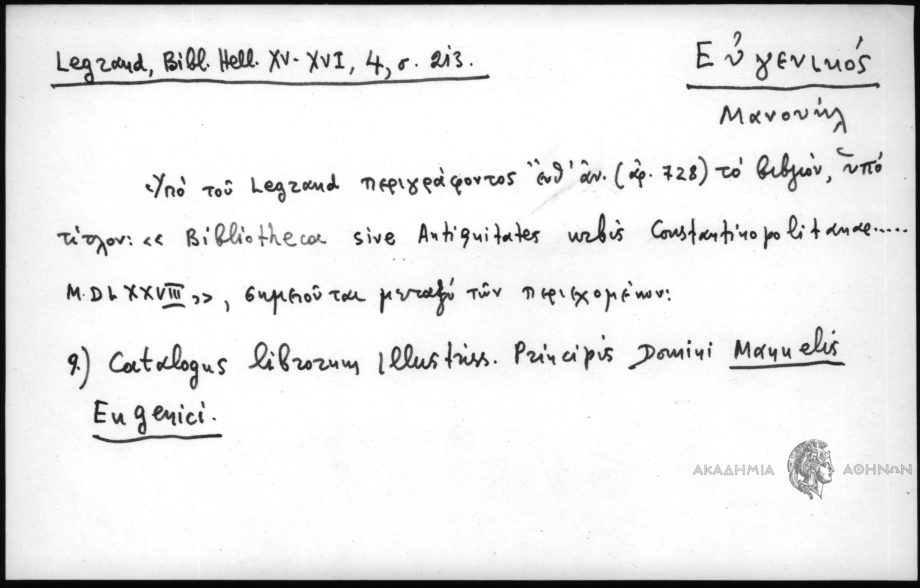 Legrand, Bibl. Hell. XV-XVI, 4, σ. 213.
Εὐγενικός
Μανουήλ
Ὑπό τοῦ Legrand περιγράφοντος ἔνθ' ἀν. (ἀρ. 728) τό βιβλίον, ὑπό
τίτλον: « Bibliotheca sive Antiquitates urbis Constantinopolitanae.....
M.DLXXVIII », σημειοῦται μεταξύ τῶν περιεχομένων:
9.) Catalogus librorum illustriss. Principis Domini Manuelis
Eugenici.
ΑΚΑΔΗΜΙΑ ΑΘΗΝΩΝ